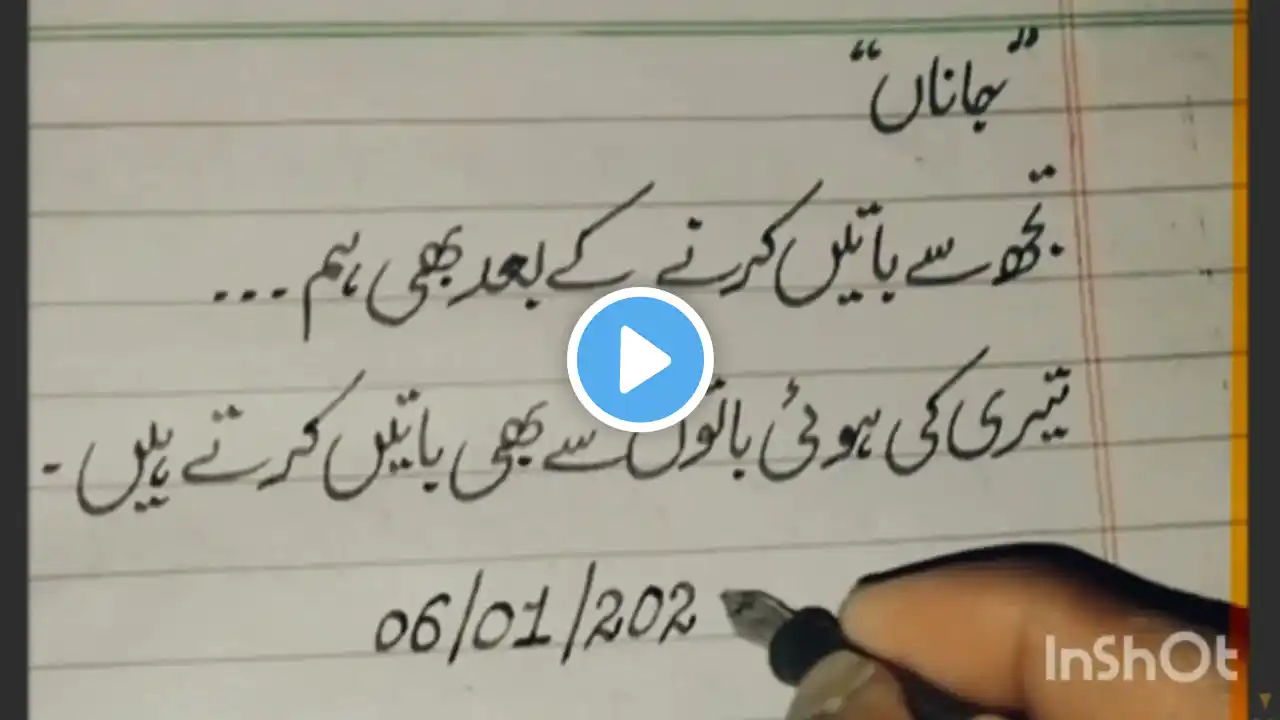 ”جاناں“
تجھ سے باتیں کرنے کے بعد بھی ہم ...
تیری کی ہوئی باتوں سے بھی باتیں کرتے ہیں ۔
06/01/202
InShOt